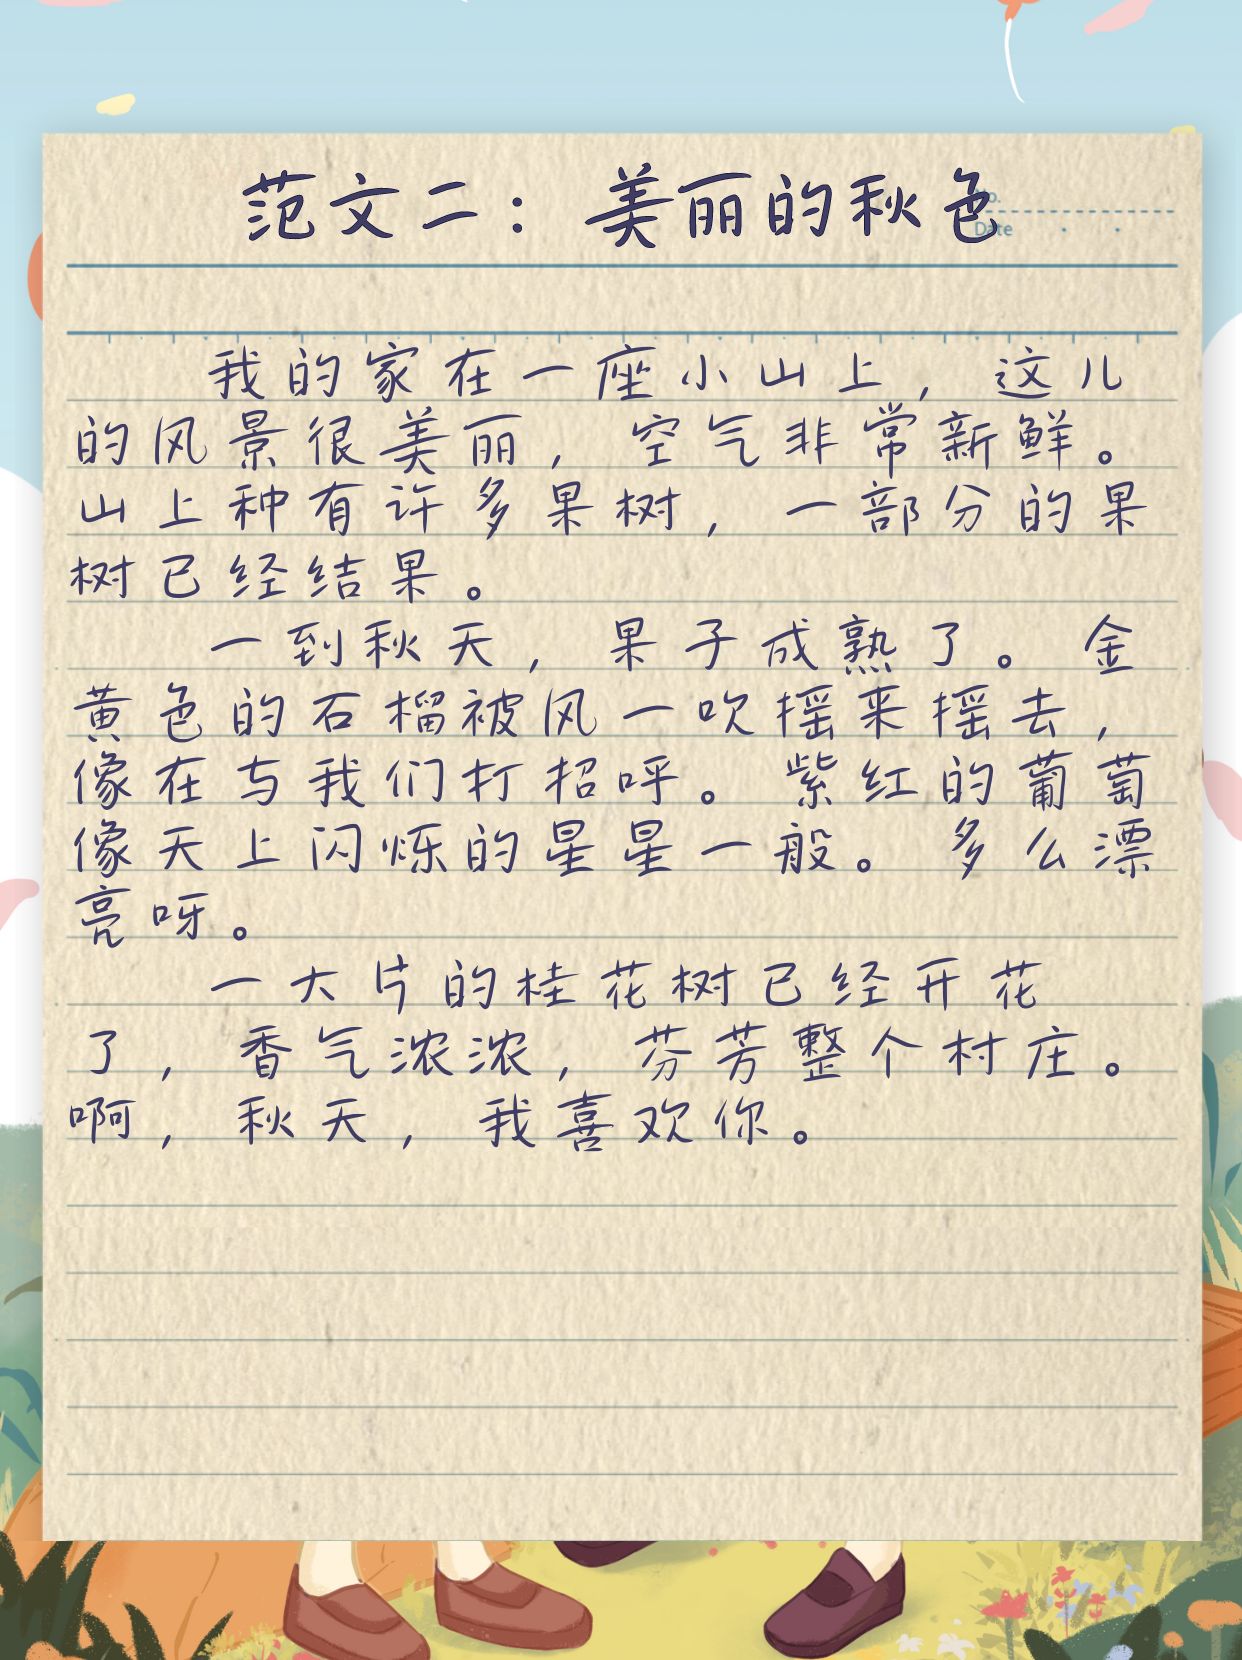 范文二：美丽的秋色
No.
Date
我的家在一座小山上，这儿
的风景很美丽，空气非常新鲜。
山上种有许多果树，一部分的果
树已经结果。
一到秋天，果子成熟了。金
黄色的石榴被风一吹摇来摇去，
像在与我们打招呼。紫红的葡萄
像天上闪烁的星星一般。多么漂
亮呀。
一大片的桂花树已经开花
了，香气浓浓，芬芳整个村庄。
啊，秋天，我喜欢你。